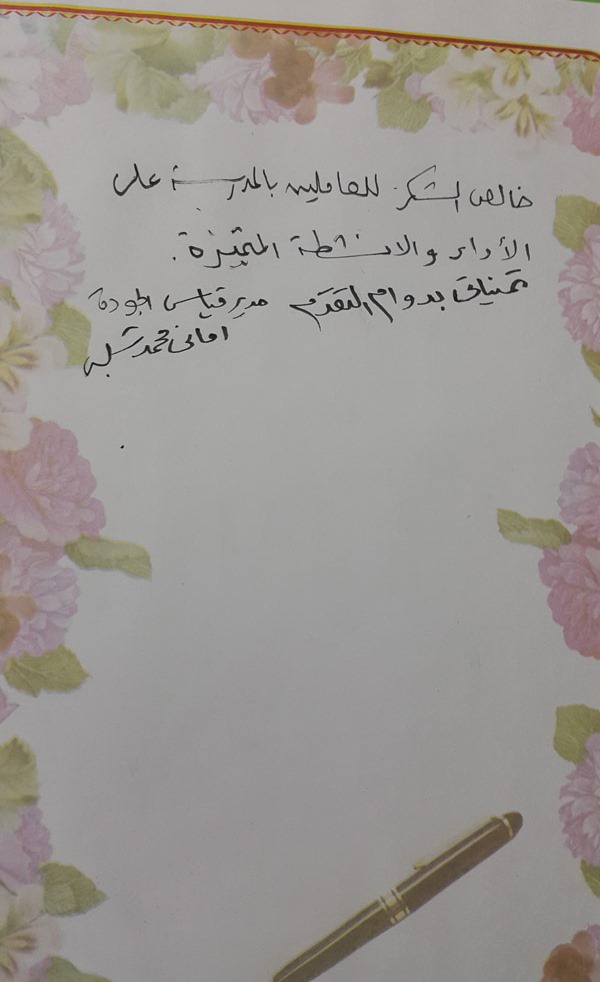 خالص الشكر للعاملين بالمدرسة على
الأداء والانشطة المتميزة.
تمنياتى بدوام التقدم مدير قياس الجودة
امانى محمد